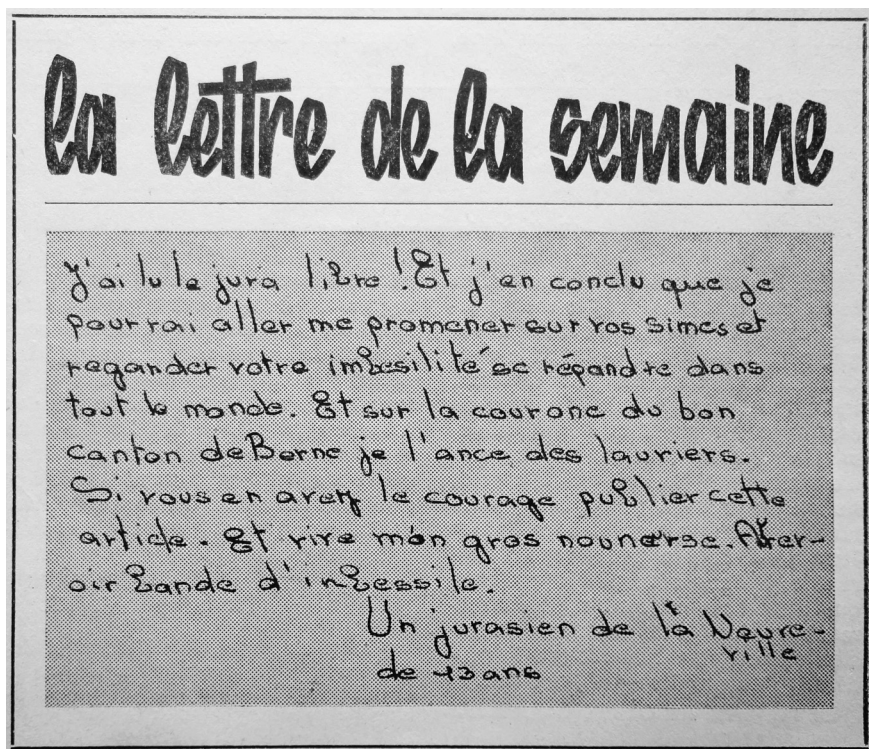 la lettre de la semaine
J'ai lu le jura libre ! Et j'en conclu que je
pourrai aller me promener sur vos simes et
regander votre imbesilité se répandre dans
tout le monde. Et sur la courone du bon
canton de Berne je l'ance des lauriers.
Si vous en avez le courage publier cette
article. Et vive mon gros nounerse. Arer-
oir bande d'inbessile.
Un jurasien de la Neuve-
ville
de 13 ans